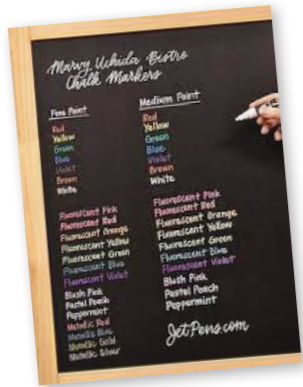 Marvy Uchida Bistro
Chalk Markers
Fine Point
Red
Yellow
Green
Blue
Violet
Brown
White
Fluorescent Pink
Fluorescent Red
Fluorescent Orange
Fluorescent Yellow
Fluorescent Green
Fluorescent Blue
Fluorescent Violet
Blush Pink
Pastel Peach
Peppermint
Metallic Red
Metallic Blue
Metallic Gold
Metallic Silver
Medium Point
Red
Yellow
Green
Blue
Violet
Brown
White
Fluorescent Pink
Fluorescent Red
Fluorescent Orange
Fluorescent Yellow
Fluorescent Green
Fluorescent Blue
Fluorescent Violet
Blush Pink
Pastel Peach
Peppermint
JetPens.com